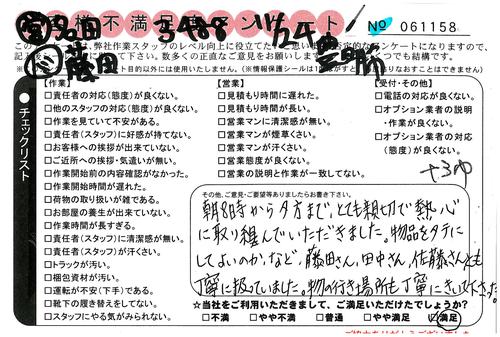 営 名田 3488 11/24
No 061158
この 弊社作業スタッフのレベル向上に役立てたいと思い 否定的なアンケートになりますので、
数多くの正直なご意見をお願いします つくつも結構です。
ト目的以外には使用いたしません。(※情報保護シールは1度 がすと なおすことはできません)
作 藤田
チェックリスト
【作業】
□責任者の対応(態度)が良くない。
□他のスタッフの対応(態度)が良くない。
□作業を見ていて不安がある。
□責任者(スタッフ)に好感が持てない。
□お客様への挨拶が出来ていない。
□ご近所への挨拶・気遣いが無い。
□作業開始前の内容確認がなかった。
□作業開始時間が遅れた。
□荷物の取り扱いが雑である。
□お部屋の養生が出来ていない。
□作業時間が長すぎる。
□責任者(スタッフ)に清潔感が無い。
□責任者(スタッフ)が汗くさい。
□トラックが汚い。
□梱包資材が汚い。
□運転が不安(下手)である。
□靴下の履き替えをしてない。
□スタッフにやる気がみられない。
【営業】
□見積もり時間に遅れた。
□見積もり時間が長い。
□営業マンに清潔感が無い。
□営業マンが煙草くさい。
□営業マンが汗くさい。
□営業態度が良くない。
□営業の説明と作業が一致してない。
【受付・その他】
□電話の対応が良くない。
□オプション業者の説明
・作業が良くない。
□オプション業者の対応
(態度)が良くない。
その他、ご意見・ご要望等ありましたらお書き下さい。
朝8時から夕方まで、とても親切で熱心
に取り組んでいただきました。物品をタテに
してよいのか、など、藤田さん、田中さん、佐藤さんとも
丁寧に扱っていました。物の行き場所も丁寧にきいて下さった。
☆当社をご利用いただきまして、ご満足いただけたでしょうか?
□不満 □やや不満 □普通 □やや満足 ☑満足